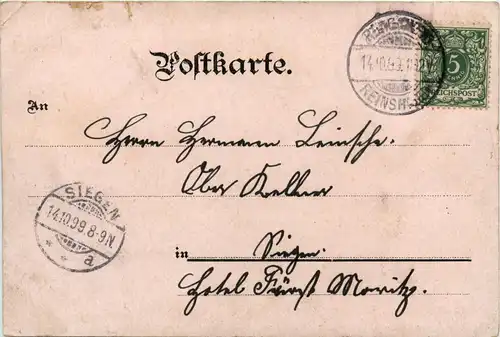 Postkarte.
14.10.99
5
REICHSPOST
An
Herrn Hermann
Ober Kellner
SIEGEN
14.10.99.8-9N
* * a
in Siegen.
Hotel Fürst Moritz.